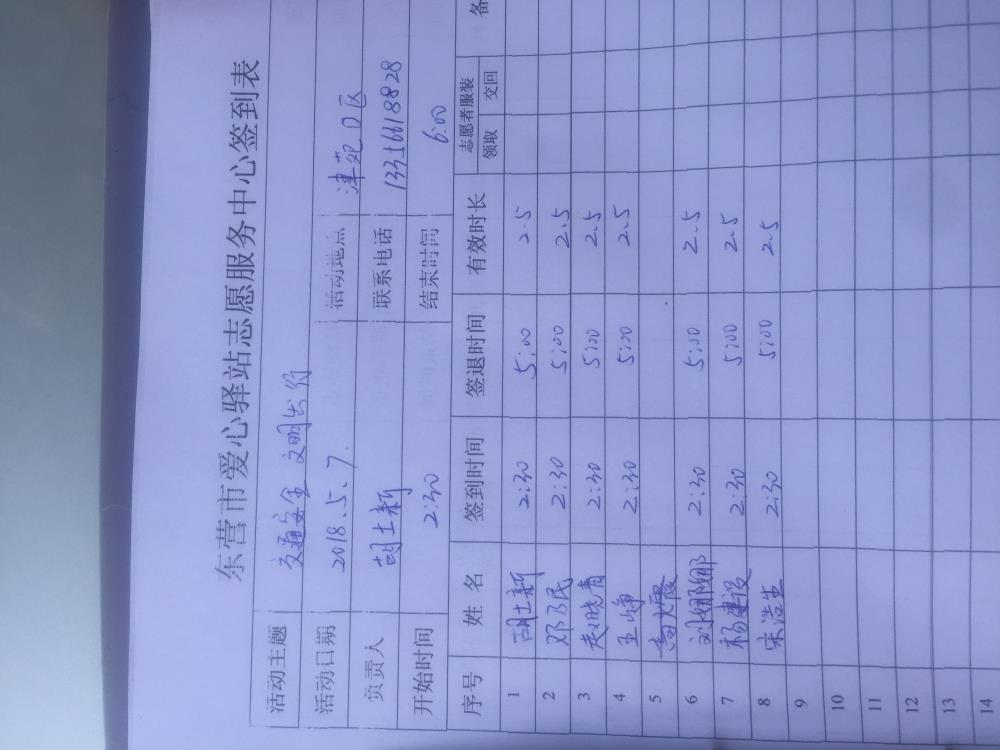 东营市爱心驿站志愿服务中心签到表
活动主题 交通安全 文明出行
活动日期 2018.5.7. 活动地点 津苑口区
负责人 胡土新 联系电话 13356618828
开始时间 2:30 结束时间 6:00
序号 姓名 签到时间 签退时间 有效时长 志愿者服装 备
领取 交回
1 胡土新 2:30 5:00 2.5
2 邓乃民 2:30 5:00 2.5
3 赵晓青 2:30 5:00 2.5
4 王峥 2:30 5:00 2.5
5
6 刘娜娜 2:30 5:00 2.5
7 杨建设 2:30 5:00 2.5
8 宋浩生 2:30 5:00 2.5
9
10
11
12
13
14